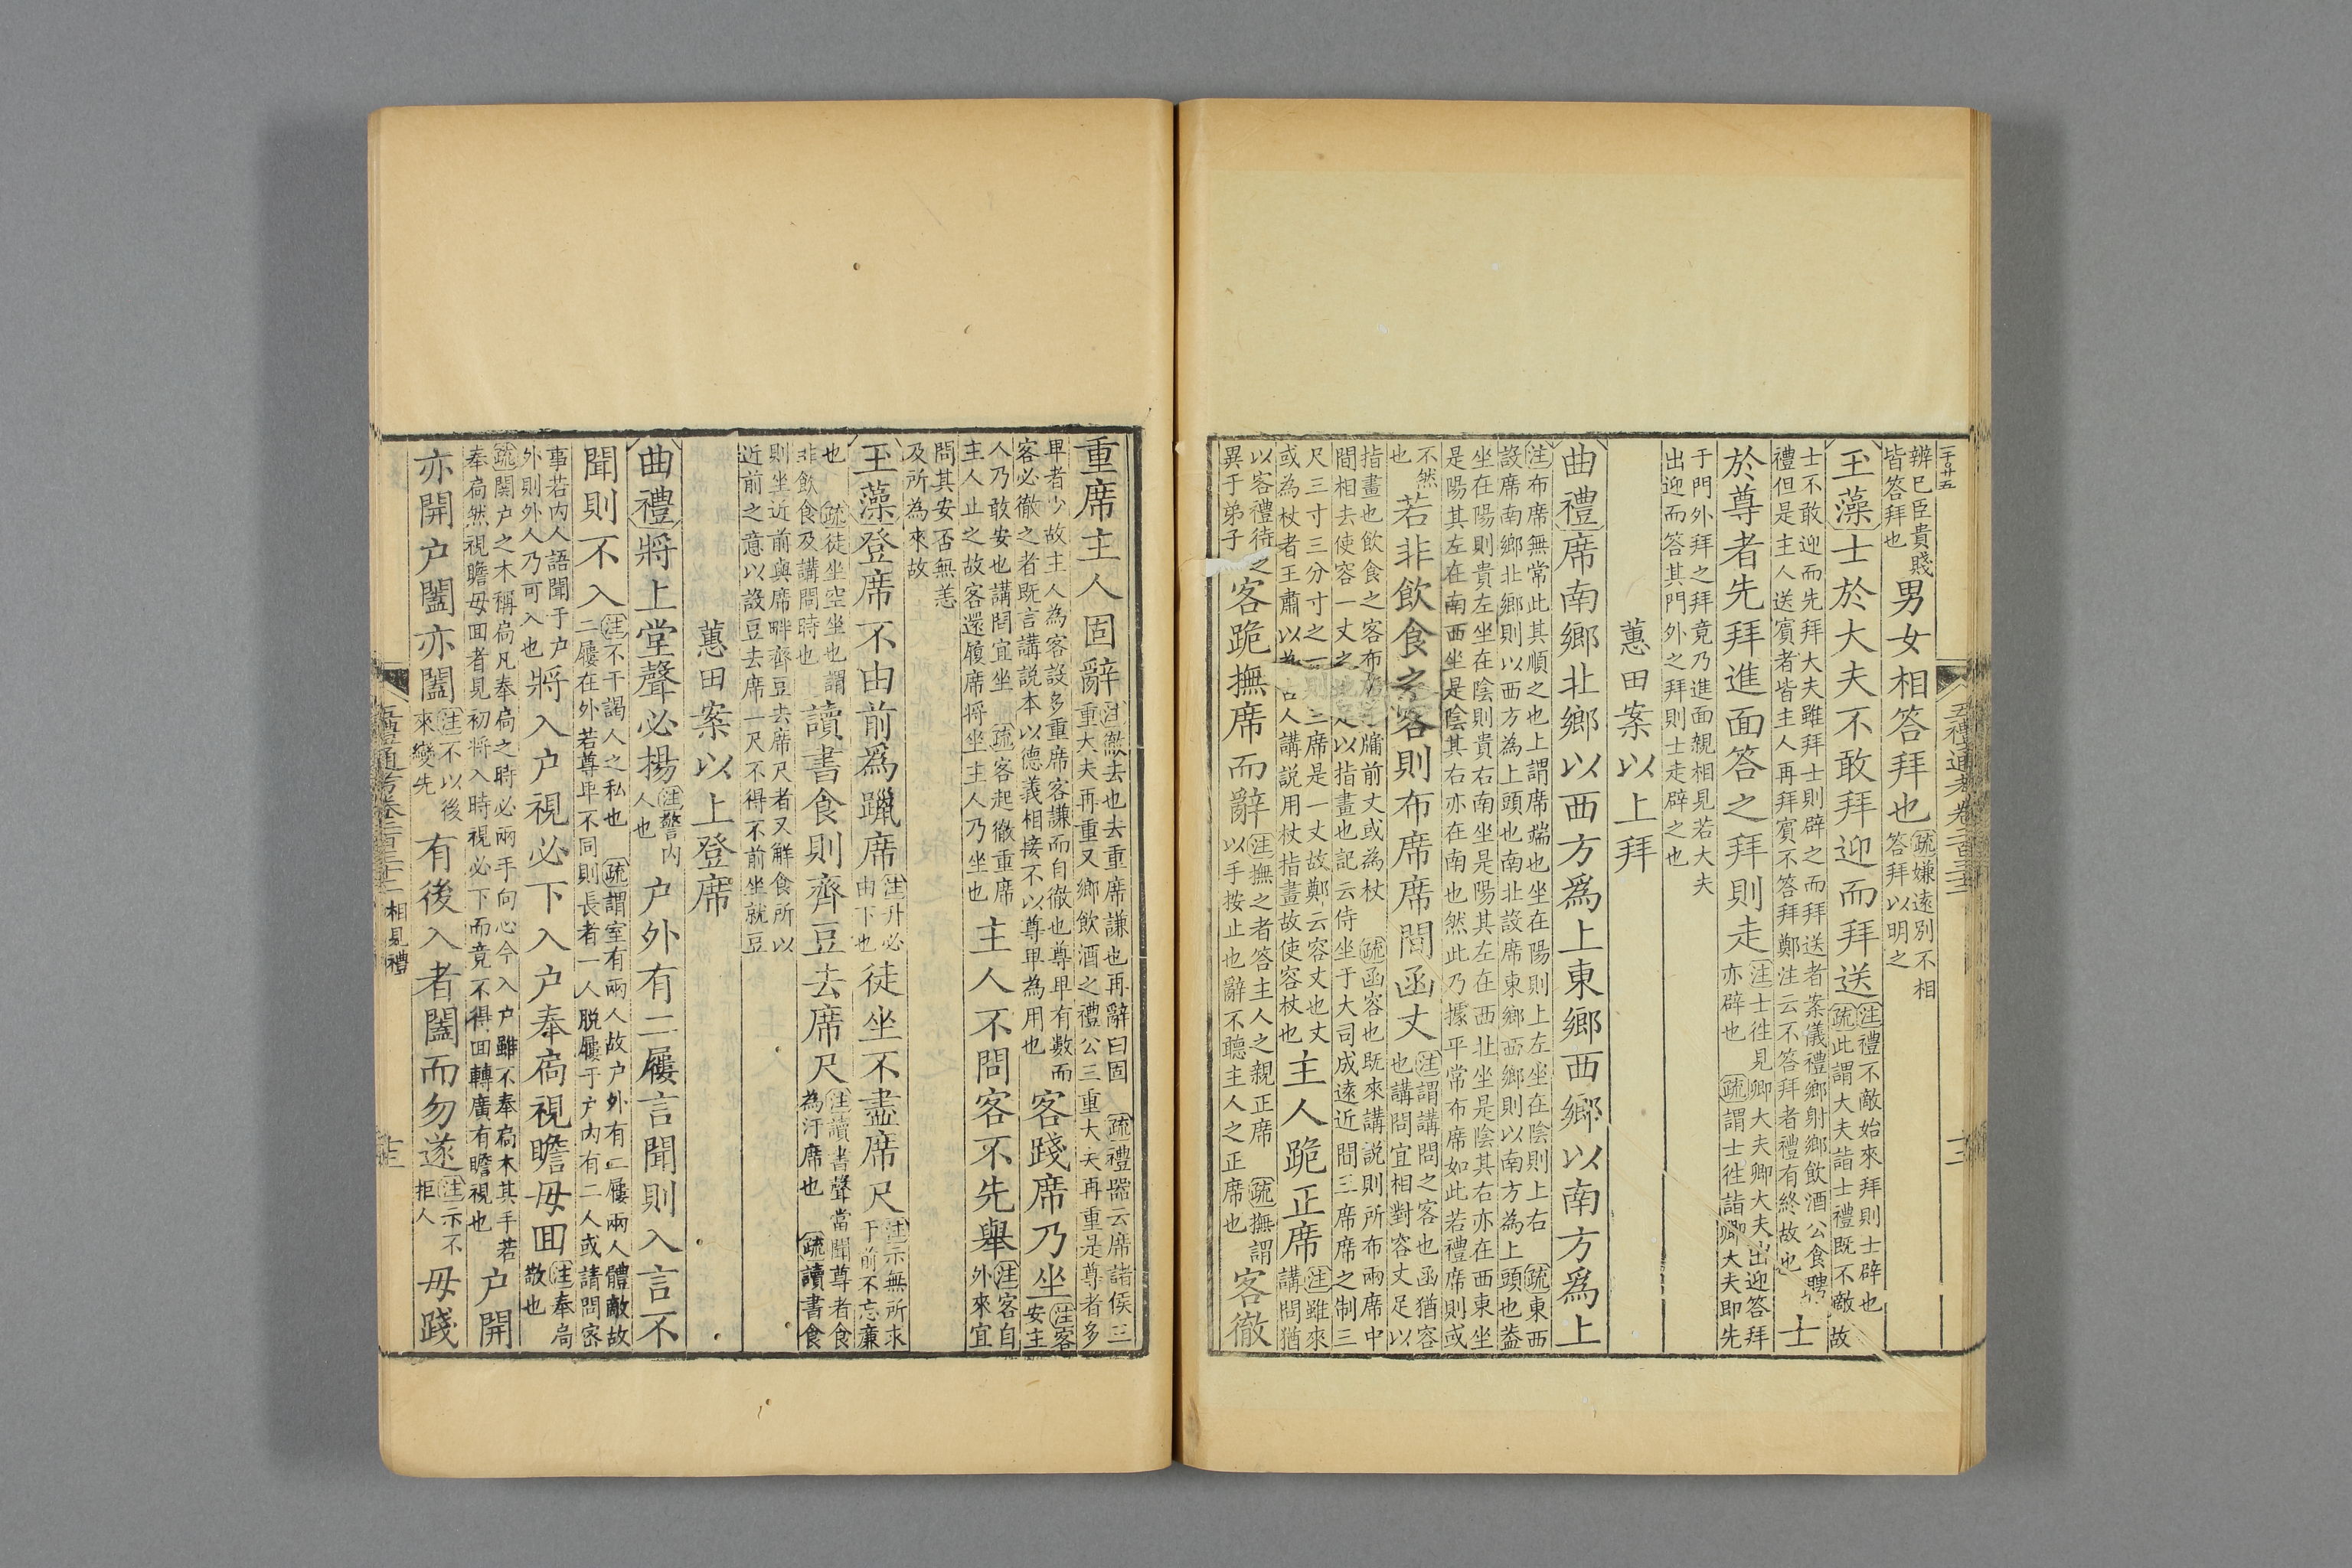 二百廿五
五禮通考卷二百三十二
十三
辨已臣貴賤皆答拜也男女相答拜也疏嫌遠別不相答拜以明之
玉藻士於大夫不敢拜迎而拜送注禮不敵始來拜則士辟也疏此謂大夫詣士禮既不敵故
士不敢迎而先拜大夫雖拜士則辟之而拜送者案儀禮鄉射鄉飲酒公食聘
禮但是主人送賓者皆主人再拜賓不答拜鄭注云不答拜者禮有終故也士
於尊者先拜進面答之拜則走注士往見卿大夫卿大夫出迎答拜亦辟也疏謂士往詣卿大夫即先
于門外拜之拜竟乃進面親相見若大夫
出迎而答其門外之拜則士走辟之也
蕙田案以上拜
曲禮席南鄉北鄉以西方爲上東鄉西鄉以南方爲上
注布席無常此其順之也上謂席端也坐在陽則上左坐在陰則上右疏東西
設席南鄉北鄉則以西方為上頭也南北設席東鄉西鄉則以南方為上頭也葢
坐在陽則貴左坐在陰則貴右南坐是陽其左在西北坐是陰其右亦在西東坐
是陽其左在南西坐是陰其右亦在南也然此乃據平常布席如此若禮席則或
不然也若非飲食之客則布席席間函丈注謂講問之客也函猶容也講問宜相對容丈足以
指畫也飲食之客布席于牖前丈或為杖疏函容也既來講說則所布兩席中
間相去使容一丈之足以指畫也記云侍坐于大司成遠近間三席席之制三
尺三寸三分寸之一三席是一丈故鄭云容丈也丈
或為杖者王肅以為古人講說用杖指畫故使容杖也主人跪正席注雖來講問猶
以客禮待之異于弟子客跪撫席而辭注撫之者答主人之親正席疏撫謂以手按止也辭不聽主人之正席也客徹
重席主人固辭注徹去也去重席謙也再辭曰固疏禮器云席諸侯三重大夫再重又鄉飲酒之禮公三重大夫再重是尊者多
卑者少故主人為客設多重席客謙而自徹也尊卑有數而
客必徹之者既言講說本以德義相接不以尊卑為用也客踐席乃坐注客安主
人乃敢安也講問宜坐疏客起徹重席
主人止之故客還履席將坐主人乃坐也主人不問客不先舉注客自外來宜
問其安否無恙
及所為來故
玉藻登席不由前爲躐席注升必由下也徒坐不盡席尺注示無所求于前不忘廉
也疏徒坐空坐也謂非飲食及講問時也讀書食則齊豆去席尺注讀書聲當聞尊者食為汙席也疏讀書食
則坐近前與席畔齊豆去席尺者又解食所以
近前之意以設豆去席一尺不得不前坐就豆
蕙田案以上登席
曲禮將上堂聲必揚注警內人也户外有二屨言聞則入言不
聞則不入注不干謁人之私也二屨在外若尊卑不同則長者一人脱屨于户内有二人或請問密疏謂室有兩人故户外有二屨兩人體敵故
事若内人語聞于户
外則外人乃可入也將入户視必下入户奉扃視瞻毋囬注奉扃敬也
疏關户之木稱扃凡奉扃之時必兩手向心今入户雖不奉扃木其手若
奉扃然視瞻毋囬者見初將入時視必下而竟不得囬轉廣有瞻視也户開
亦開户闔亦闔注不以後來變先有後入者闔而勿遂注示不拒人毋踐
五禮通考卷二百三十二
相見禮
十三